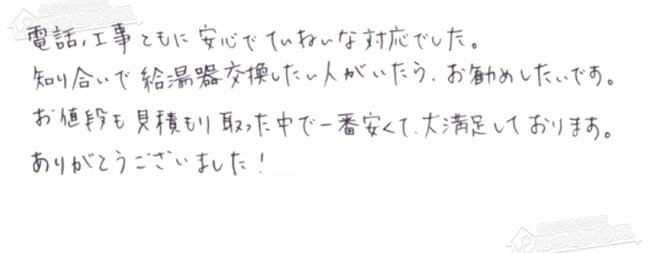 電話、工事ともに安心でていねいな対応でした。
知り合いで給湯器交換したい人がいたら、お勧めしたいです。
お値段も見積もり取った中で一番安くて、大満足しております。
ありがとうございました!